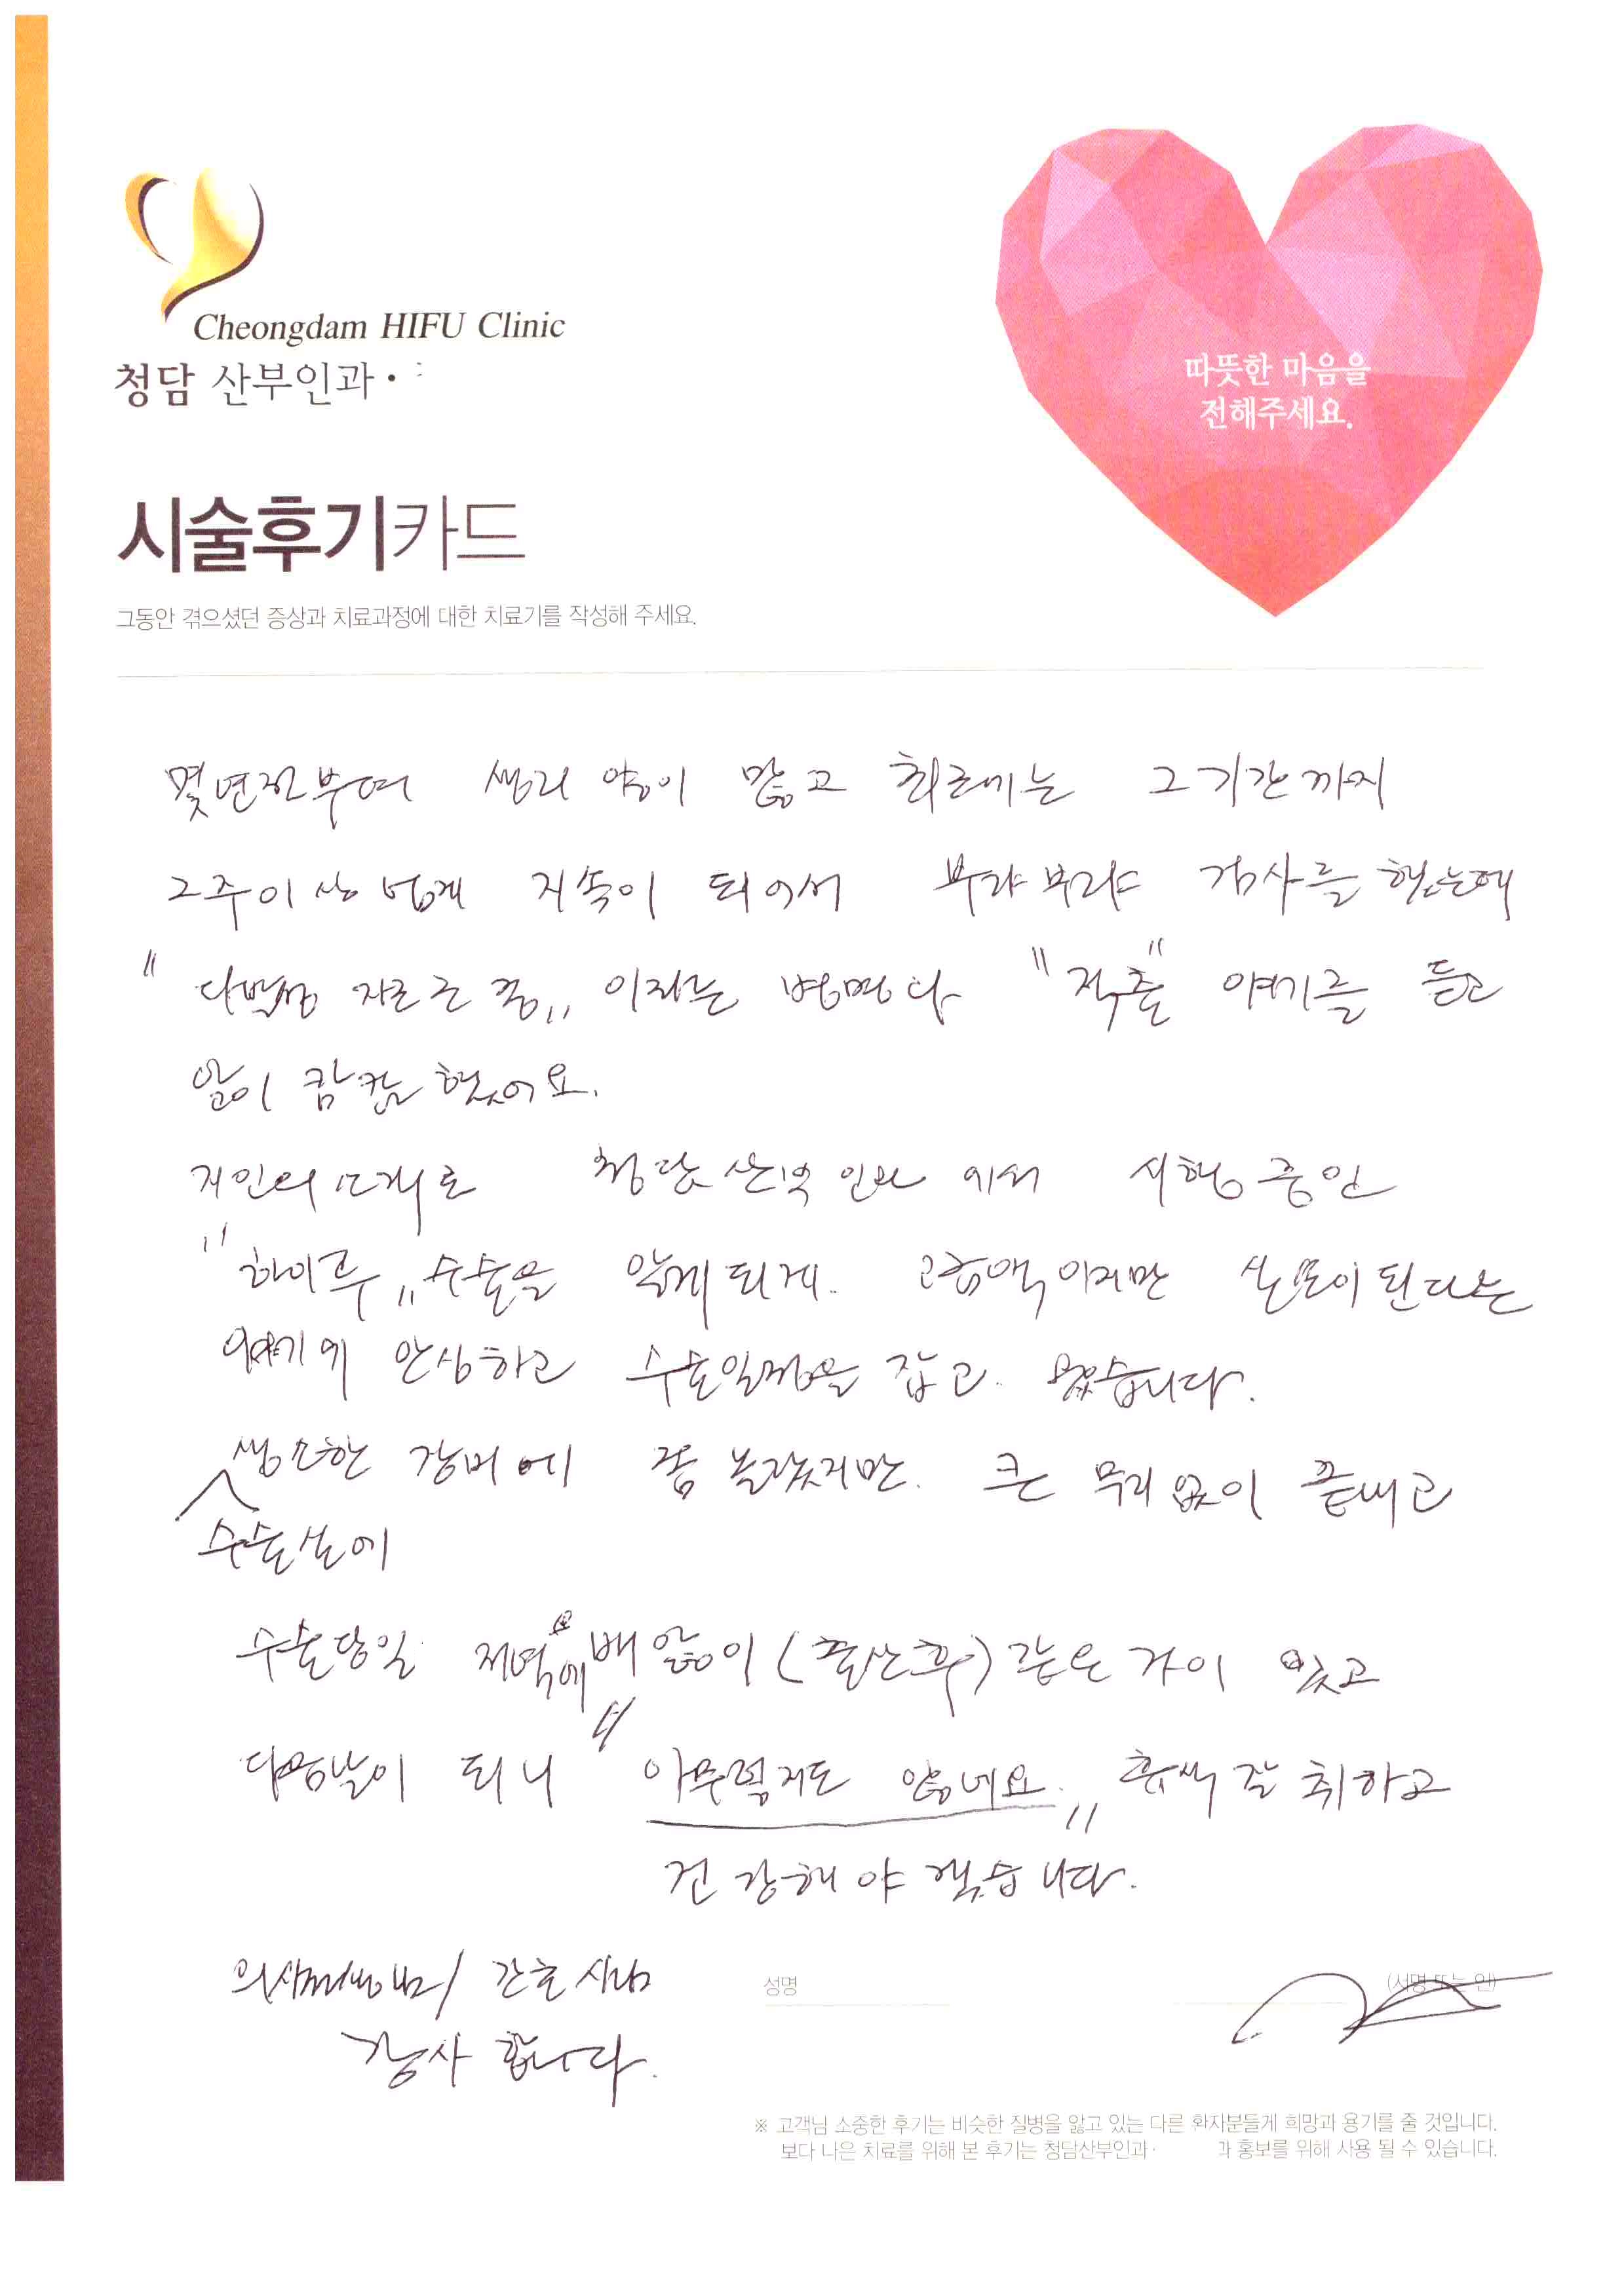 Cheongdam HIFU Clinic
청담 산부인과·
따뜻한 마음을
전해주세요.
시술후기카드
그동안 겪으셨던 증상과 치료과정에 대한 치료기를 작성해 주세요.
몇년전부터 생리 양이 많고 최근에는 그 기간까지
2주이상 넘게 지속이 되어서 부랴부랴 검사를 했는데
"다발성 자궁근종" 이라는 병명과 "적출" 얘기를 듣고
앞이 캄캄 했어요.
지인의 소개로 청담산부인과 에서 시행중인
"하이푸" 수술을 알게되게. 고금액이지만 실보이 된다는
얘기에 안심하고 수술일정을 잡고. 왔습니다.
생소한 장비에 좀 놀랐지만. 큰 무리 없이 끝내고
수술실에
수술당일 저녁에 배 앓이 (출산후) 같은 것이 있고
다음날이 되니 "아무렇지도 않네요." 휴식 잘 취하고
건강해야 겠습니다.
의사선생님/ 간호사님
감사 합니다.
성명
(서명 또는 인)
※ 고객님 소중한 후기는 비슷한 질병을 앓고 있는 다른 환자분들게 희망과 용기를 줄 것입니다.
보다 나은 치료를 위해 본 후기는 청담산부인과· 과 홍보를 위해 사용 될 수 있습니다.